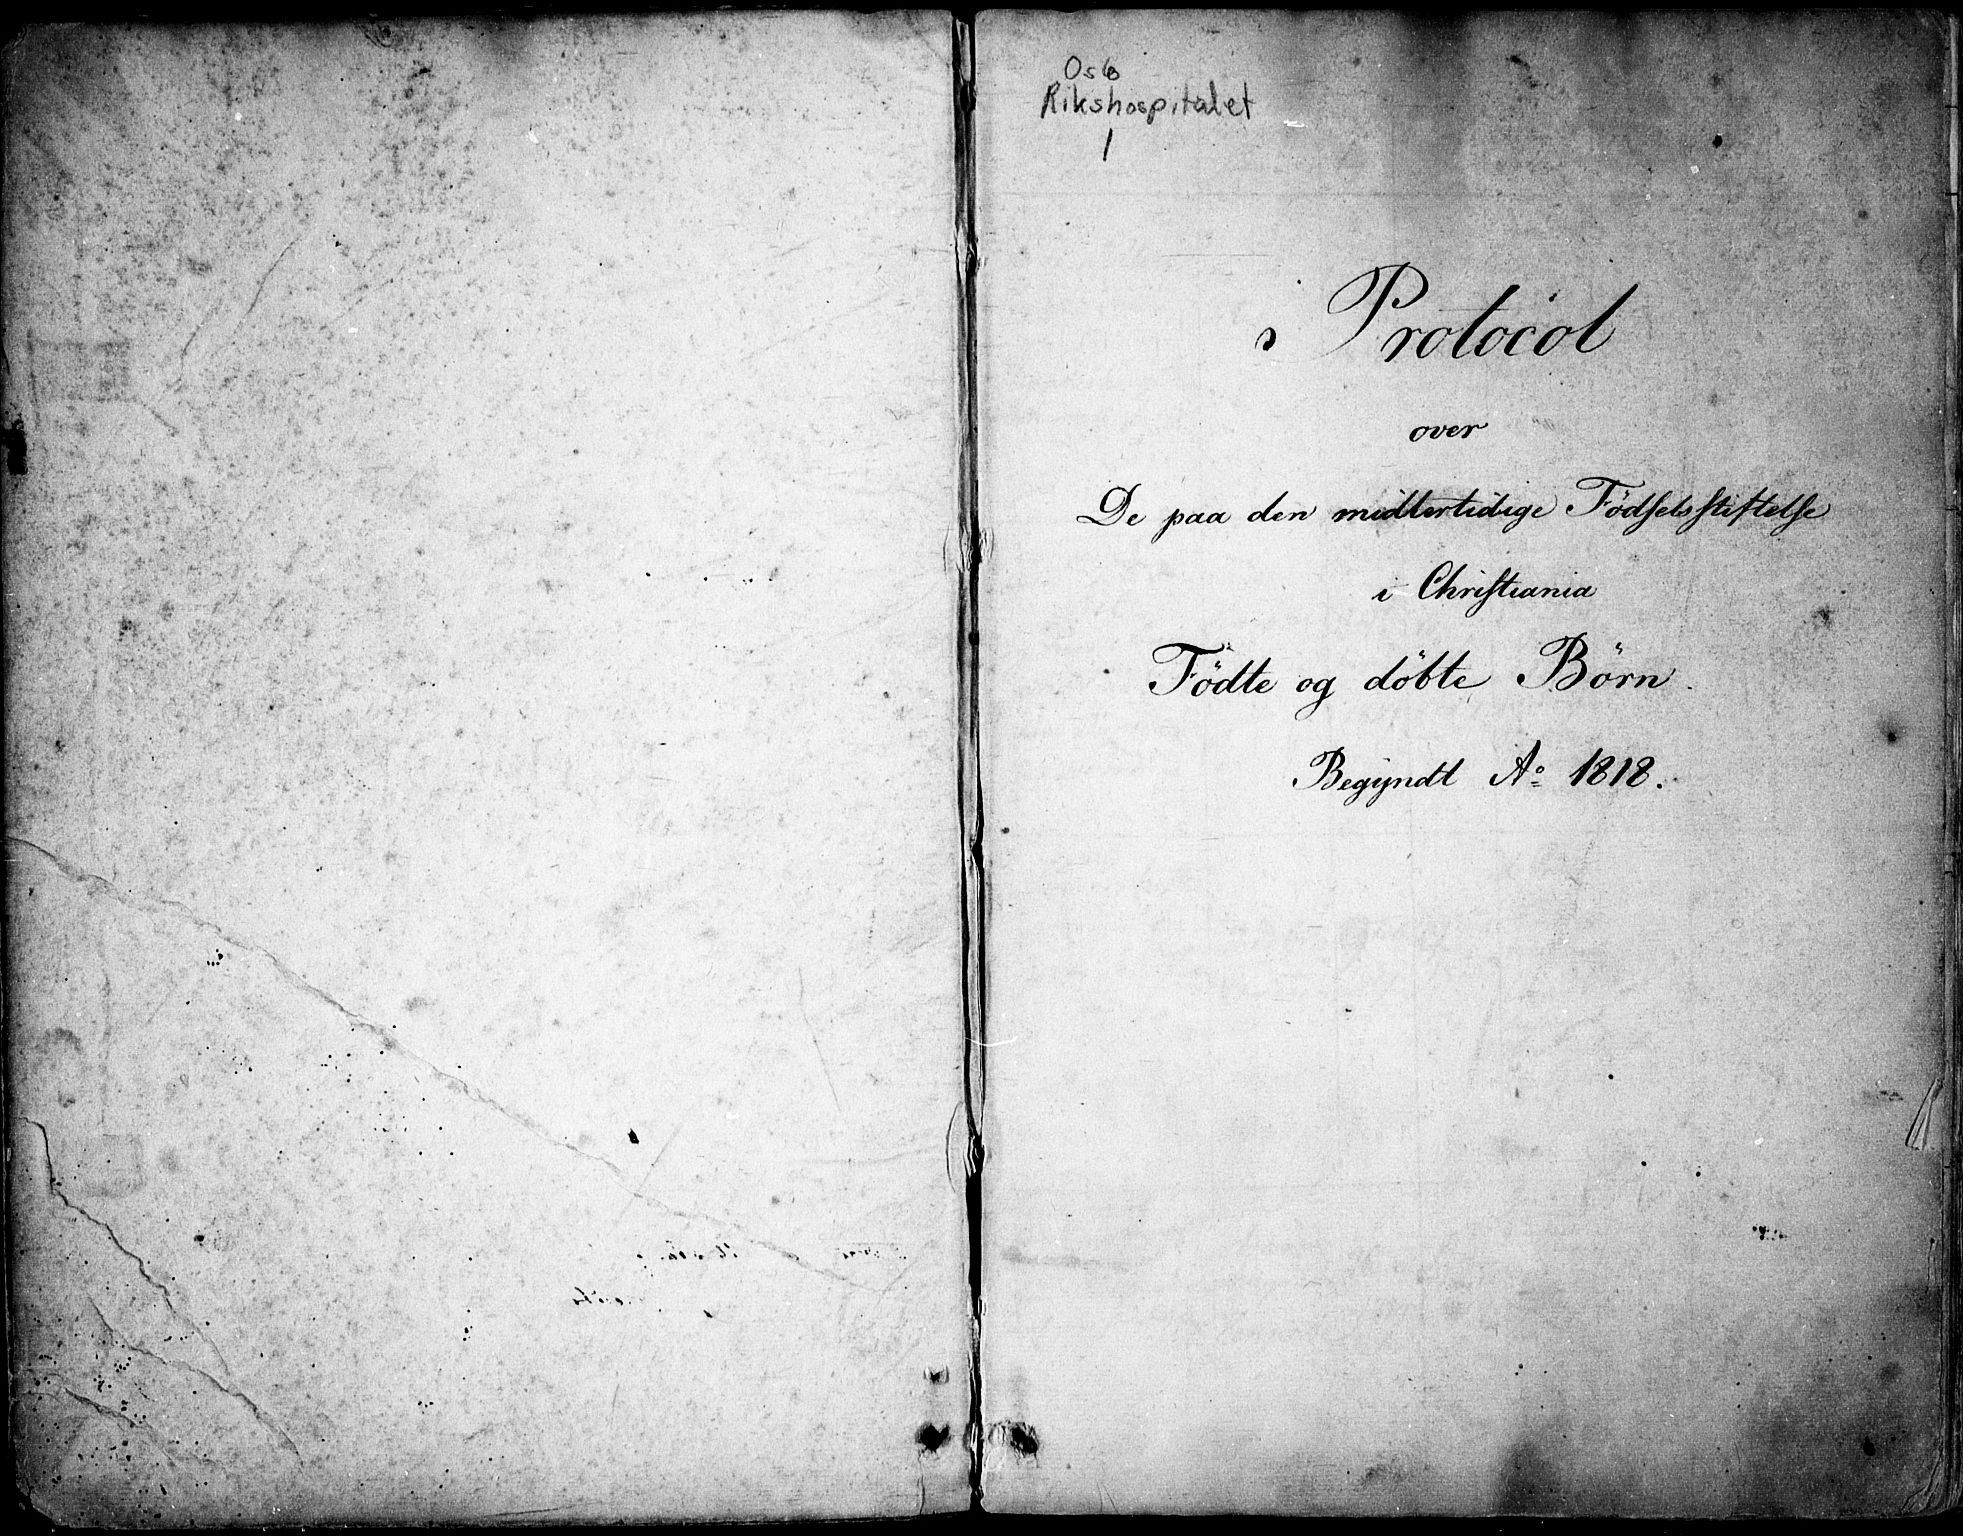 Oslo
Rikshospitalet
1
Protocol
over
De paa den midlertidige Födselsstiftelse
i Christiania
Födte og döbte Börn.
Begyndt Aº 1818.